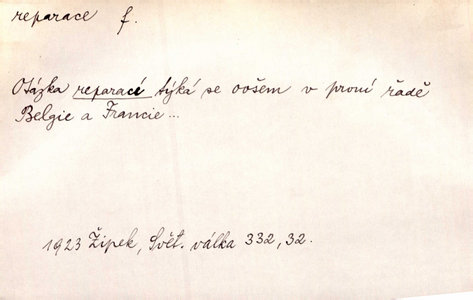 reparace f.
Otázka reparací týká se ovšem v první řadě
Belgie a Francie...
1923 Žipek, Svět. válka 332, 32.